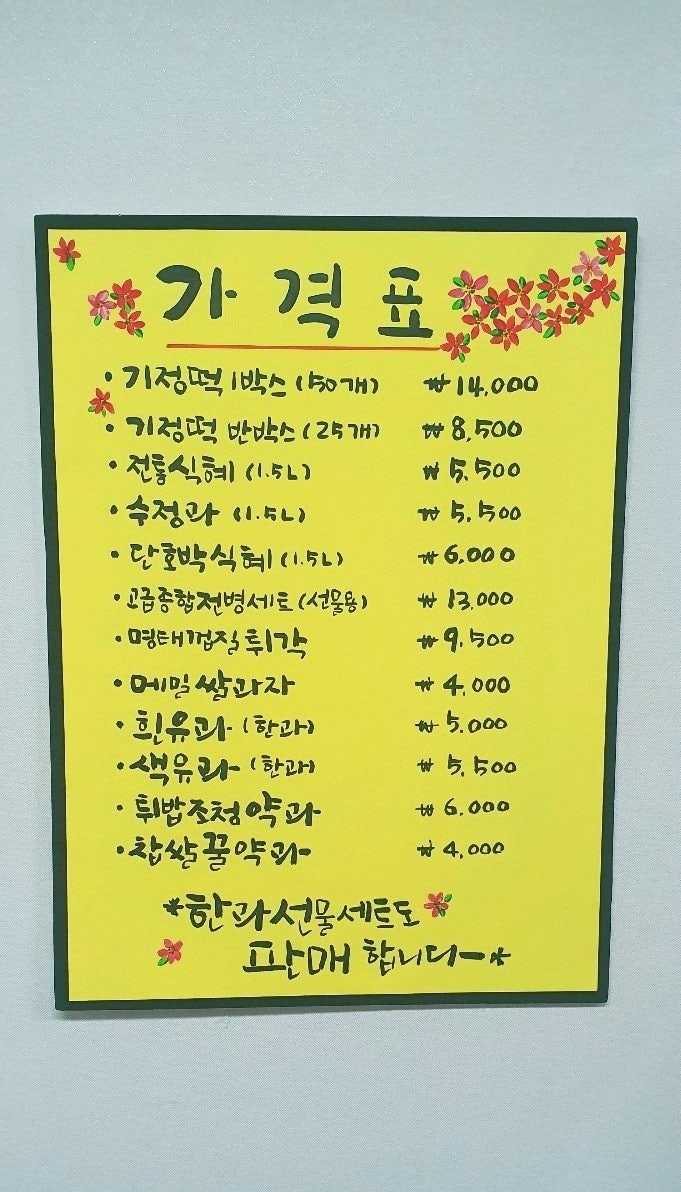 가격표
· 기정떡 1박스 (50개) ₩ 14,000
· 기정떡 반박스 (25개) ₩ 8,500
· 전통식혜 (1.5L) ₩ 5,500
· 수정과 (1.5L) ₩ 5,500
· 단호박식혜 (1.5L) ₩ 6,000
· 고급종합전병세트 (선물용) ₩ 13,000
· 명태껍질튀각 ₩ 9,500
· 메밀쌀과자 ₩ 4,000
· 흰유과 (한과) ₩ 5,000
· 색유과 (한과) ₩ 5,500
· 튀밥조청약과 ₩ 6,000
· 찹쌀꿀약과 ₩ 4,000
*한과선물세트도
판매합니다-*